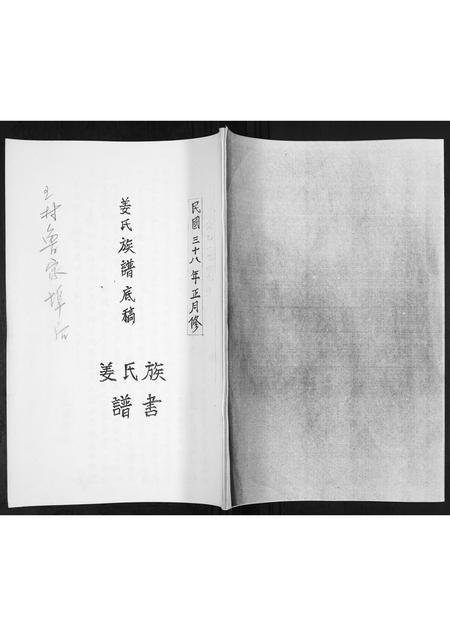 民國三十八年正月修
姜氏族譜底稿
姜氏族
譜書
王村魯家埠后